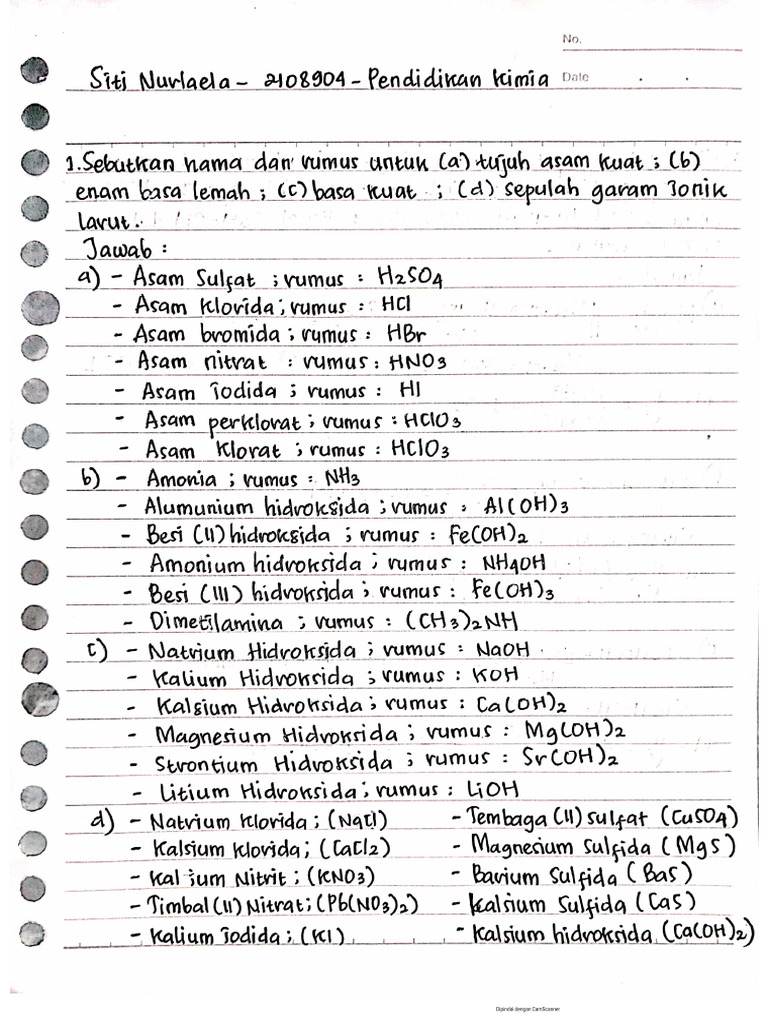 No.
Siti Nurlaela - 2108904 - Pendidikan Kimia Date . .
1. Sebutkan nama dan rumus untuk (a) tujuh asam kuat ; (b)
enam basa lemah ; (c) basa kuat ; (d) sepulah garam ionik
larut.
Jawab :
a) - Asam Sulfat ; rumus : H2SO4
- Asam Klorida ; rumus : HCl
- Asam bromida ; rumus : HBr
- Asam nitrat : rumus : HNO3
- Asam iodida ; rumus : HI
- Asam perklorat ; rumus : HClO3
- Asam Klorat ; rumus : HClO3
b) - Amonia ; rumus : NH3
- Alumunium hidroksida ; rumus : Al(OH)3
- Besi (II) hidroksida ; rumus : Fe(OH)2
- Amonium hidroksida ; rumus : NH4OH
- Besi (III) hidroksida ; rumus : Fe(OH)3
- Dimetilamina ; rumus : (CH3)2NH
c) - Natrium Hidroksida ; rumus : NaOH
- Kalium Hidroksida ; rumus : KOH
- Kalsium Hidroksida ; rumus : Ca(OH)2
- Magnesium Hidroksida ; rumus : Mg(OH)2
- Strontium Hidroksida ; rumus : Sr(OH)2
- Litium Hidroksida ; rumus : LiOH
d) - Natrium Klorida ; (NaCl) - Tembaga (II) sulfat (CuSO4)
- Kalsium Klorida ; (CaCl2) - Magnesium Sulfida (MgS)
- Kalium Nitrit ; (KNO3) - Barium Sulfida (BaS)
- Timbal (II) Nitrat ; (Pb(NO3)2) - Kalsium Sulfida (CaS)
- Kalium iodida ; (KI) - Kalsium hidroksida (Ca(OH)2)
Dipindai dengan CamScanner